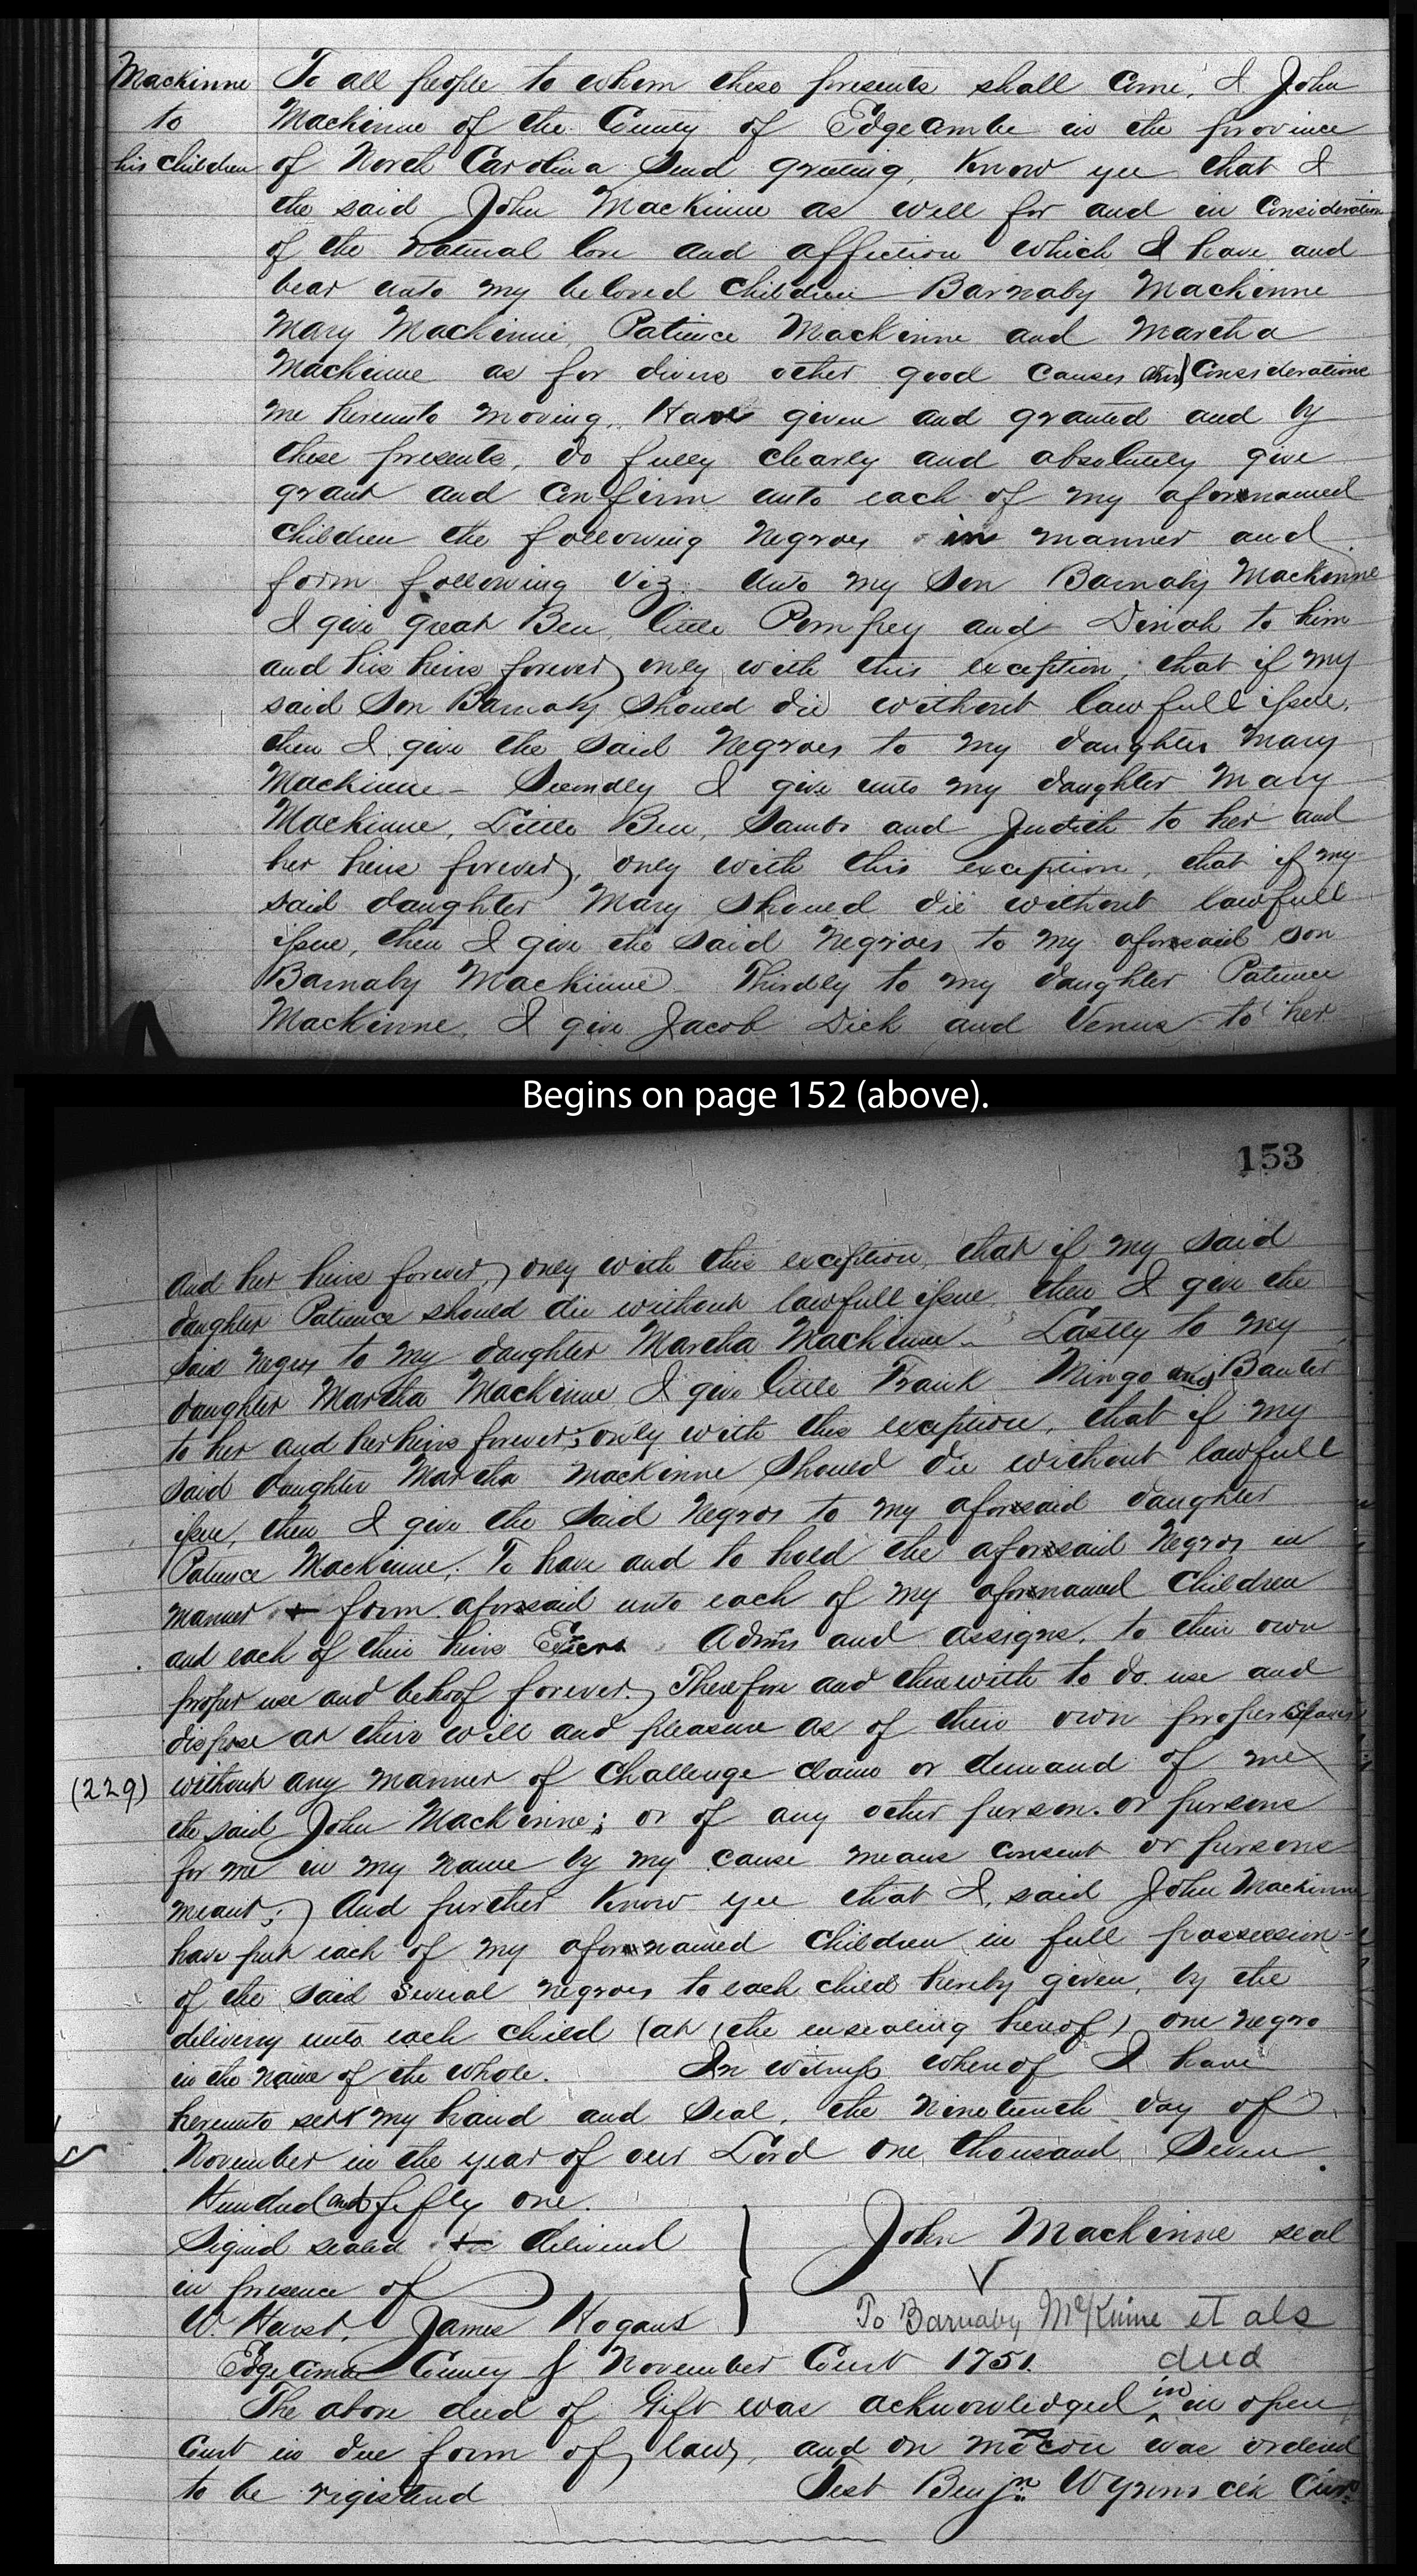 Mackinne
to
his Children
To all people to whom these presents shall Come, I John
Mackinne of the County of Edgecombe in the province
of North Carolina Send greeting, Know yee that I
the said John Mackinne as well for and in Consideration
of the natural love and affection which I have and
bear unto my beloved Children Barnaby Mackinne
Mary Mackinne, Patience Mackinne and Martha
Mackinne as for divers other good Causes and Considerations
me hereunto moving, Have given and granted and by
these presents, do fully clearly and absolutely give
grant and Confirm unto each of my aforenamed
Children the following Negroes in manner and
form following Viz. Unto my Son Barnaby Mackinne
I give great Ben, little Pompey and Dinah to him
and his heirs forever, only with this exception, that if my
said Son Barnaby Should die without lawfull issue,
then I give the said Negroes to my daughter Mary
Mackinne - Secondly I give unto my daughter Mary
Mackinne, Little Ben, Sambo and Judith to her and
her heirs forever, only with this exception, that if my
said daughter Mary Should die without lawfull
issue, then I give the said Negroes to my aforesaid son
Barnaby Mackinne Thirdly to my daughter Patience
Mackinne, I give Jacob Dick and Venus to her
Begins on page 152 (above).
153
and her heirs forever, only with this exception, that if my said
daughter Patience should die without lawfull issue, then I give the
said Negros to my daughter Martha Mackinne - Lastly to my
daughter Martha Mackinne I give little Frank Mingo and
to her and her heirs forever; only with this exception, that if my
said daughter Martha Mackinne Should die without lawfull
issue, then I give the said Negros to my aforesaid daughter
Patience Mackinne; To have and to hold the aforesaid Negros in
manner form aforesaid unto each of my aforenamed Children
and each of their heirs Exers Admrs and assigns, to their own
proper use and behoof forever. Therefore and therewith to do use and
dispose at their will and pleasure as of their own proper
(229)
without any manner of Challenge claim or demand of me
the said John Mackinne; or of any other person or persons
for me in my name by my cause means Consent or persons
meant; And further Know yee that I, said John Mackinne
have put each of my aforenamed Children in full possession
of the said several negroes to each child hereby given, by the
delivery unto each child (at the ensealing hereof) one negro
in the name of the whole. In witness whereof I have
hereunto sett my hand and Seal, the Nineteenth day of
November in the year of our Lord one thousand Seven
Hundred and fifty one.
Signd sealed delivered
in presence of
W. Hurst, James Hogans
John Mackinne seal
To Barnaby McKinne et als
deed
Edgecombe County November Court 1751.
The above deed of Gift was acknowledged in in open
Court in due form of law, and on motion was ordered
to be registered
Test Benjn Wynns Clk Cur